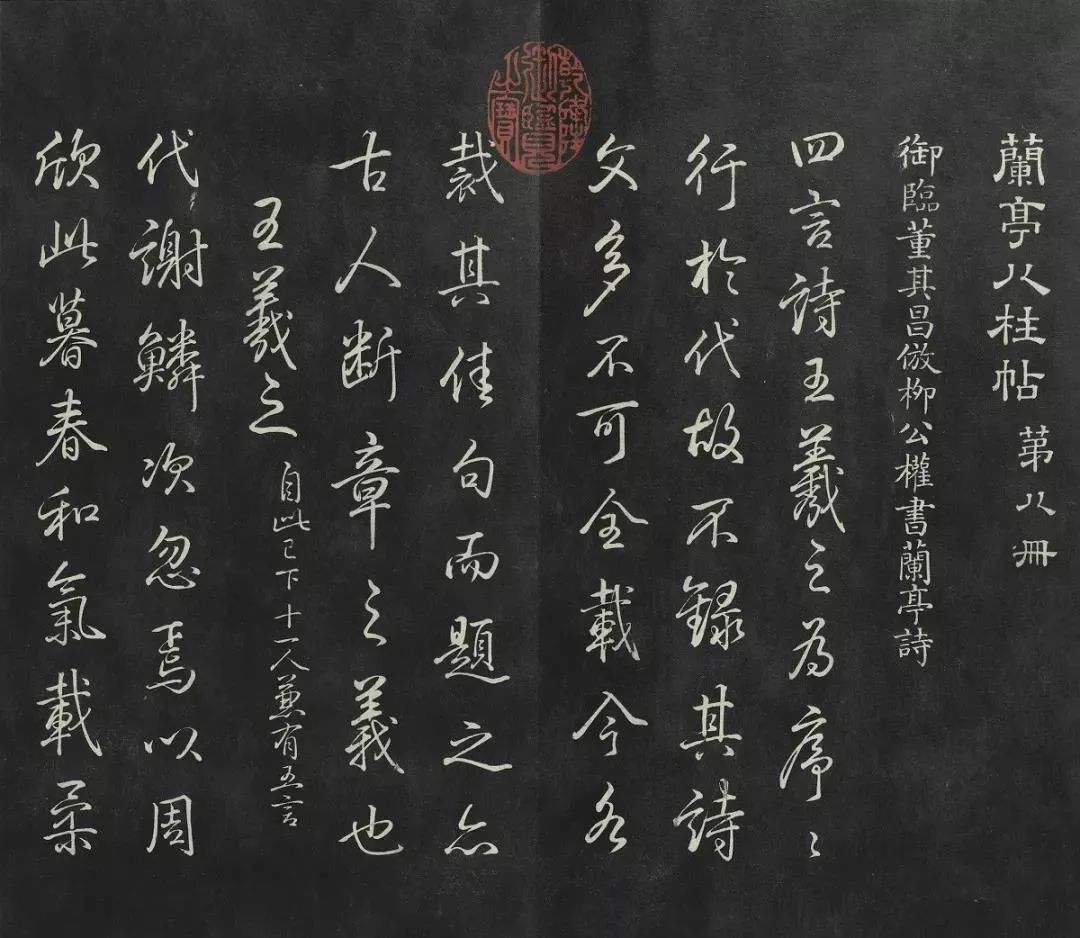 蘭亭八柱帖 第八冊
御臨董其昌倣柳公權書蘭亭詩
四言詩王羲之為序序
行於代故不錄其詩
文多不可全載今各
裁其佳句而題之亦
古人斷章之義也
王羲之 自此已下十一人兼有五言
代謝鱗次忽焉以周
欣此暮春和氣載柔
乾隆御覽之寶